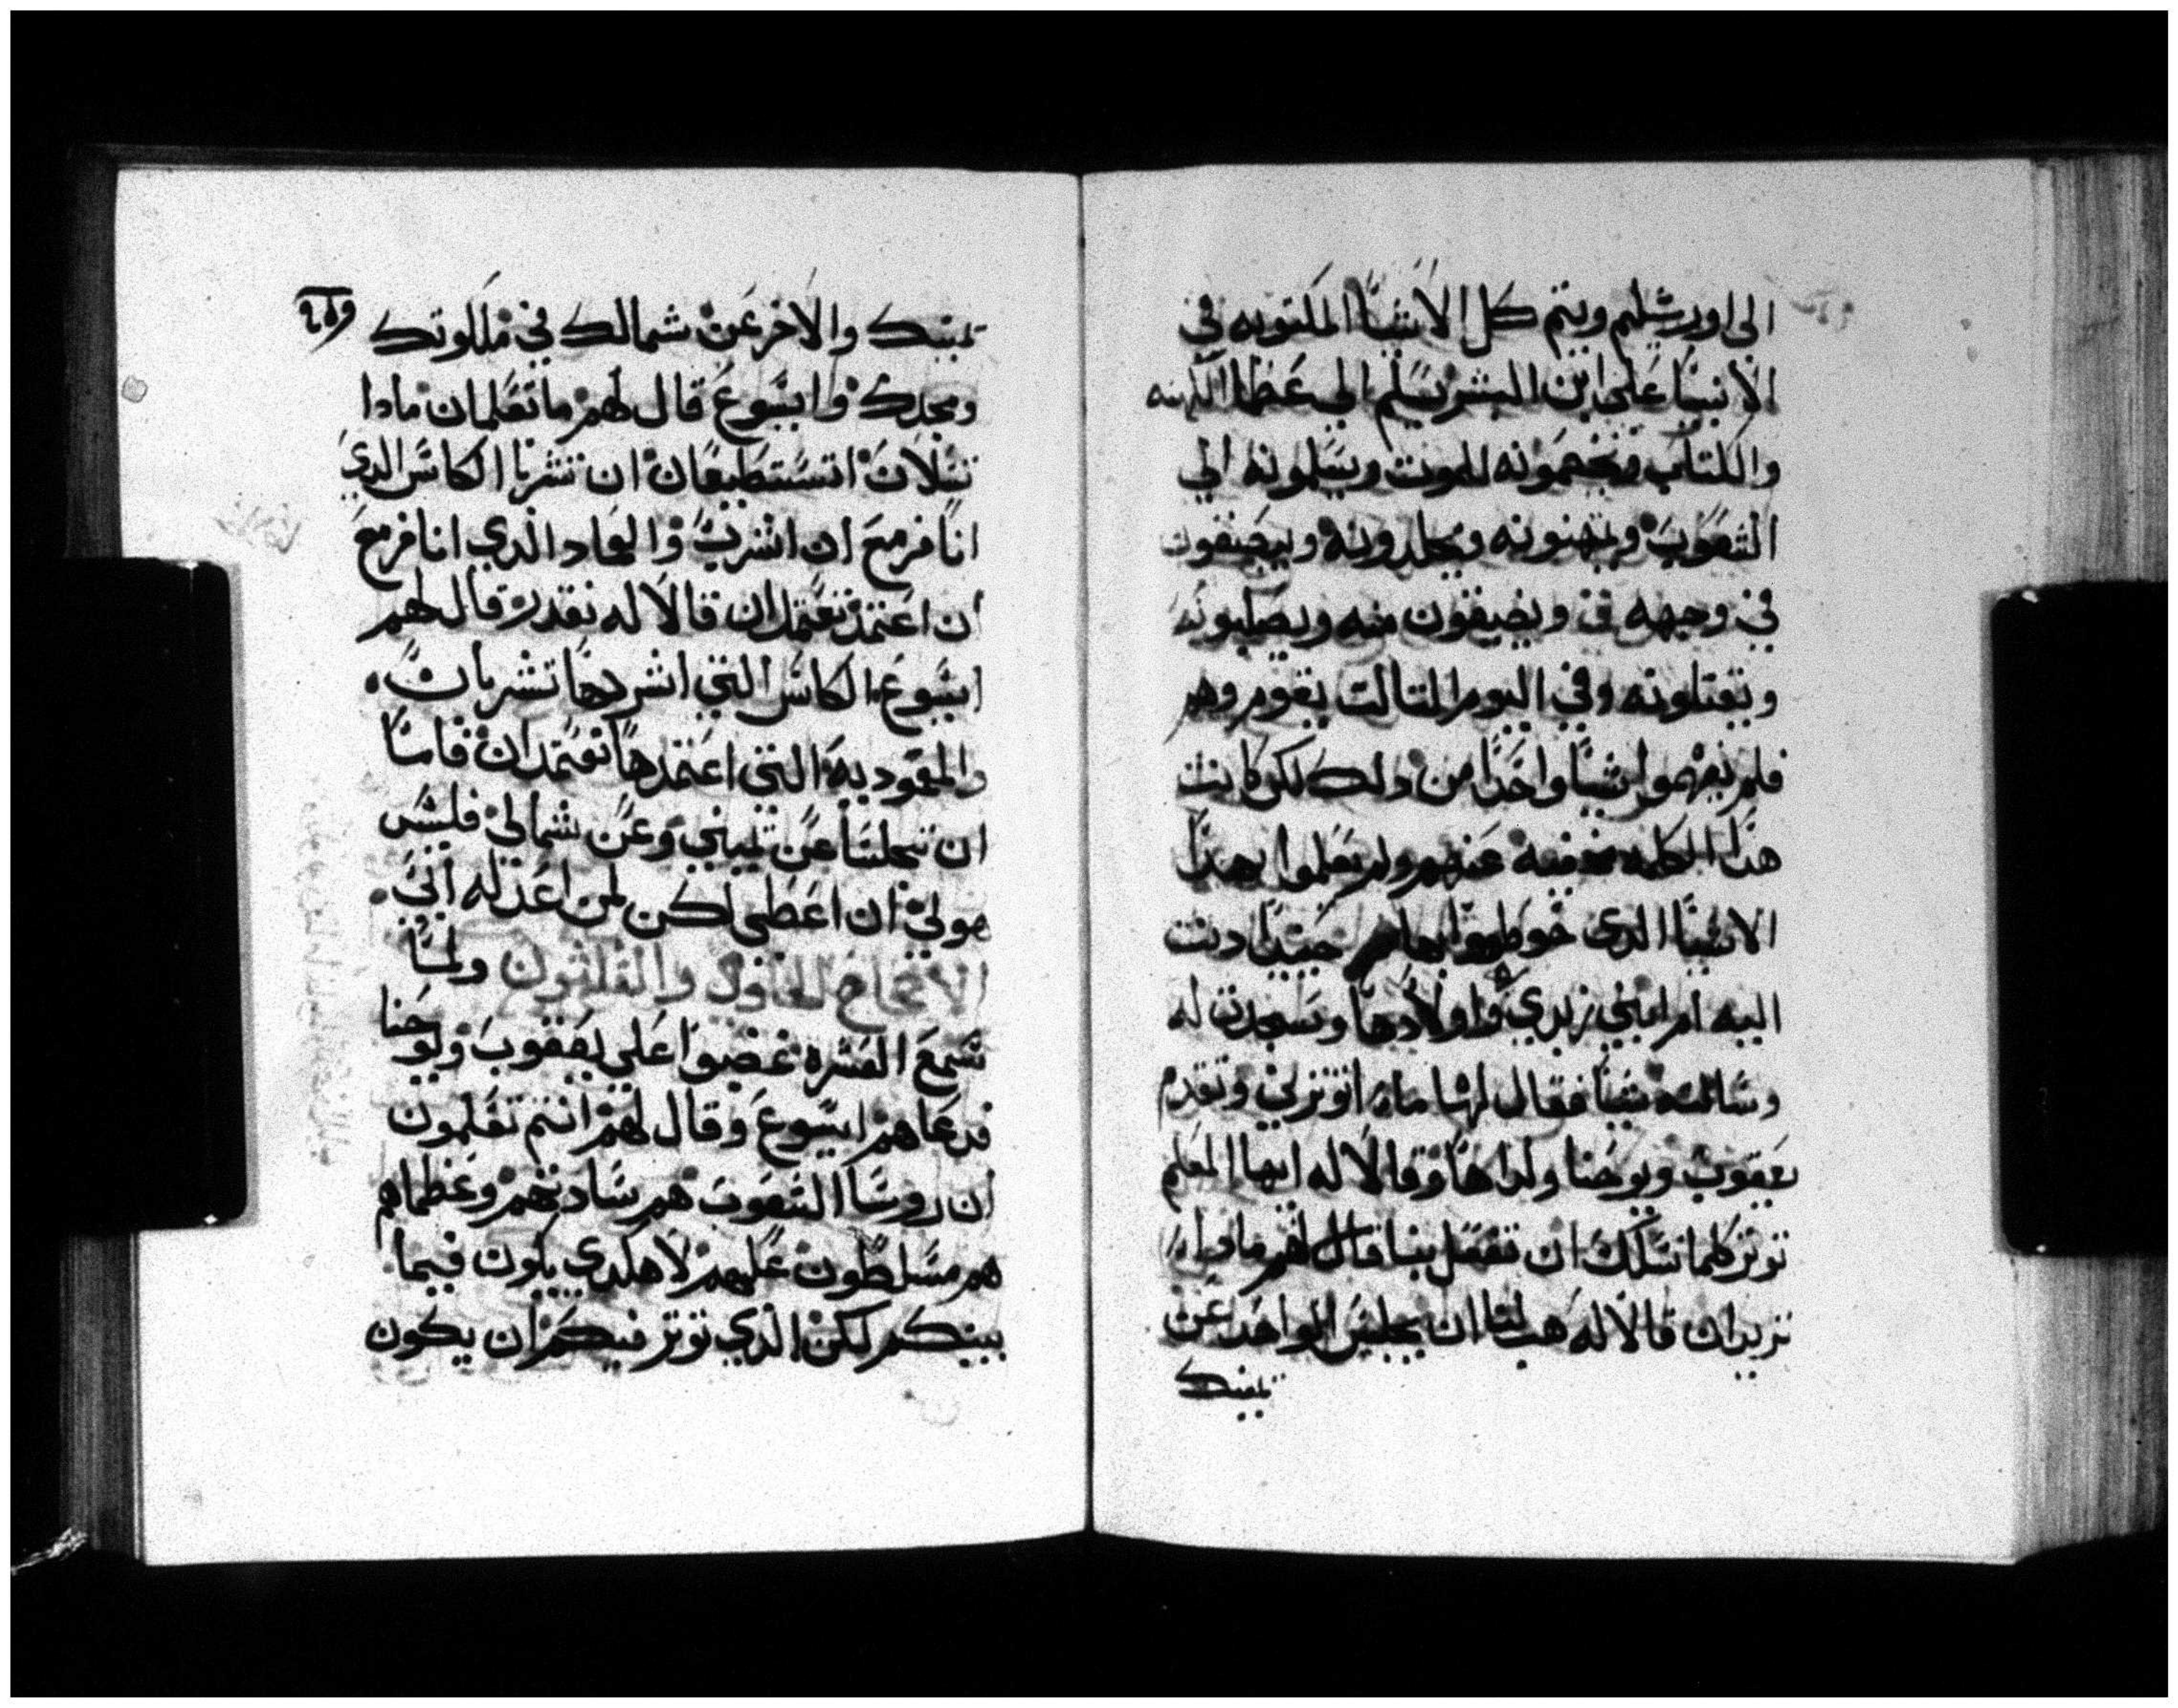 الى اورشليم ويتم كل الاشيا المكتوبه في
الانبيا على ابن البشر يسلم الى عظما الكهنه
والكتاب ويخصمونه للموت ويسلمونه الى
الشعوب ويهنونه ويجلدونه ويبصقون
في وجهه ويضيقون منه ويصلبونه
ويقتلونه وفي اليوم التالت يقوم وهم
فلم يفهموا شيا واحدا من دلك لكن كانت
هدا الكلمه مخفيه عنهم ولم يعلموا بهدا
الاشيا الدى خوطبوا بها حينيدا دنت
اليه ام ابني زبدي واولادها وسجدت له
وسالته شيا فقال لها مادا توتري وتقدم
يعقوب ويوحنا ولداها وقالا له ايها المعلم
نوتر كلما نسلك ان تفعل بنا قال لهم مادا
تريدان قالا له هب لنا ان يجلس الواحد عن
يمينك
يمينك والاخر عن شمالك في ملكوتك
ومجدك وا ايسوع قال لهم ما تعلمان مادا
تسلان اتستطيعان ان تشربا الكاس الدي
انا مزمع ان اشرب والعماد الدي انا مزمع
ان اعتمد تعتمدان قالا له نقدر قال لهم
ايسوع الكاس التي اشربها تشربان
والمعموديه التي اعتمدها تعتمدان فاما
ان تجلسا عن يميني وعن شمالي فليس
هو لي ان اعطى لكن لمن اعد له ابي
الاصحاح الحادي والثلثون ولما
سمع العشره غضبوا على يعقوب ويوحنا
فدعاهم ايسوع وقال لهم انتم تعلمون
ان روسا الشعوب هم سادتهم وعظماهم
هم مسلطون عليهم لا هكدي يكون فيما
بينكم لكن الدي توتر فيكم ان يكون